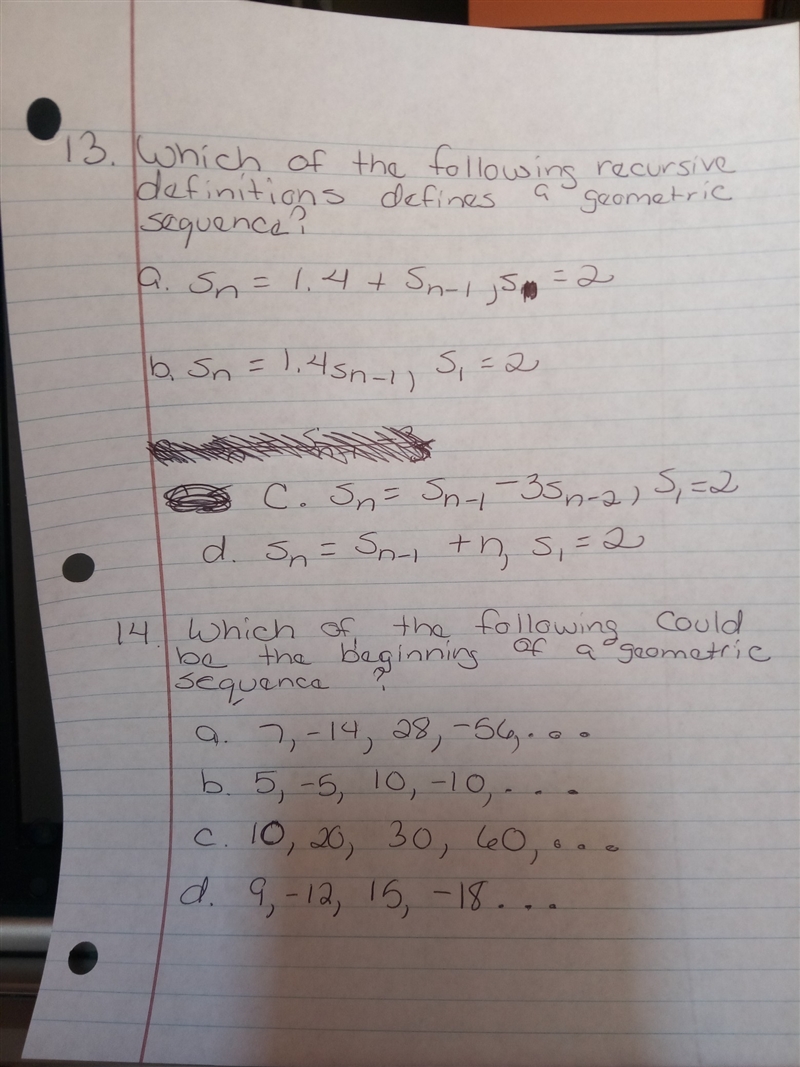 13. Which of the following recursive
definitions defines a geometric
sequence?
a. Sn = 1.4 + Sn-1, S = 2
b. Sn = 1.4Sn-1, S1 = 2
c. Sn = Sn-1 - 3Sn-2, S1 = 2
d. Sn = Sn-1 + n, S1 = 2
14. Which of the following could
be the beginning of a geometric
sequence ?
a. 7, -14, 28, -56, ...
b. 5, -5, 10, -10, ...
c. 10, 20, 30, 60, ...
d. 9, -12, 15, -18 ...